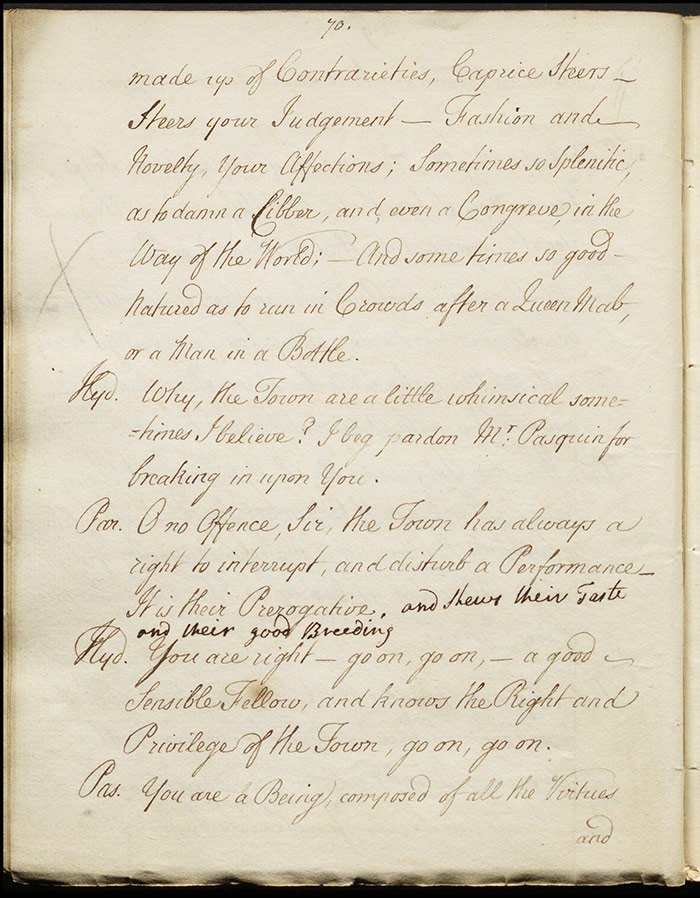 70.
made up of Contrarieties, Caprice Steers –
Steers your Judgement – Fashion and
Novelty, Your Affections; Sometimes so Splenitic,
as to damn a Cibber, and, even a Congreve, in the
Way of the World; – And some times so good –
natured as to run in Crowds after a Queen Mab,
or a Man in a Bottle.
Hyd. Why, the Town are a little whimsical some=
=times I believe? I beg pardon Mr. Pasquin for
breaking in upon You.
Pas. O no Offence, Sir, the Town has always a
right to interrupt, and disturb a Performance –
It is their Prerogative. and Shews their Taste
and their good Breeding
Hyd. You are right – go on, go on, – a good
Sensible Fellow, and knows the Right and
Privilege of the Town, go on, go on.
Pas. You are a Being, composed of all the Virtues
and